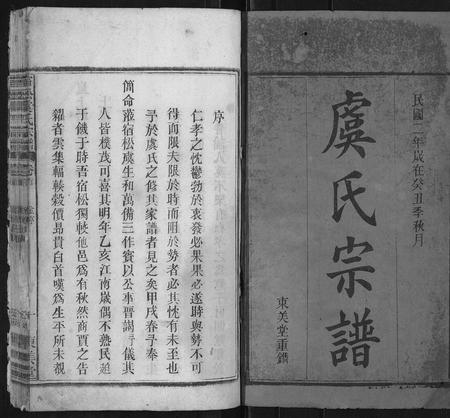 民國二年歲在癸丑季秋月
虞氏宗譜
東美堂重鐫
序
仁孝之忱鬱勃於衷發必果果必遂時與勢不可
得而限夫限於時而阻於勢者必其忱有未至也
予於虞氏之修其家譜者見之矣甲戌春予奉
簡命蒞宿松虞生和萬備三作賓以公事晋謁予儀其
人皆樸茂可喜其明年乙亥江南歲偶不熟民延
于饑于時吾宿松獨較他邑爲有秋然商賈之告
糴者雲集輻輳穀價昻貴白首嘆爲生平所未覩